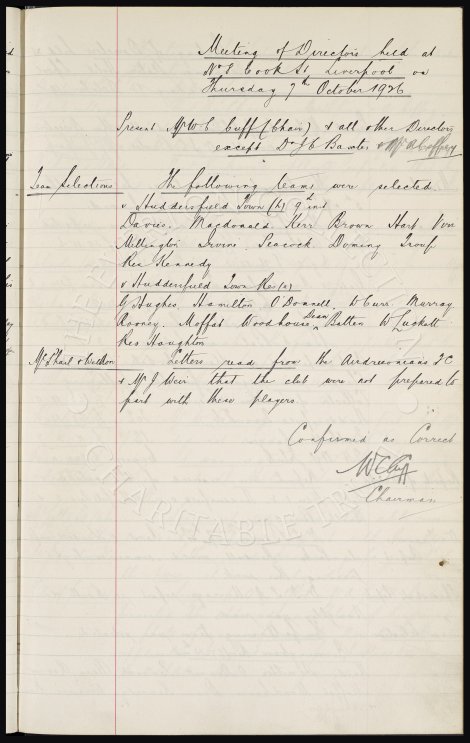 Meeting of Directors held at
No 8 Cook St Liverpool on
Thursday 7th October 1926
Present Mr W C Cuff (Chair) & all other Directors
except Dr J C Baxter & Mr A Coffey
Team Selections
The following teams were selected
v Huddersfield Town (h) 9th inst
Davies, Macdonald Kerr Brown Hart Virr
Millington Irvine Peacock Dominy Troup
Res Kennedy
v Huddersfield Town Res (a)
G Hughes, Hamilton O'Donnell, W Curr Murray
Rooney, Moffat Woodhouse Dean Batten W Luckett
Res Houghton
McPhail & Weldon
Letters read from the Airdrieonians FC
& Mr J Weir that the club were not prepared to
part with these players
Confirmed as Correct
W C Cuff
Chairman
CHARITABLE TR